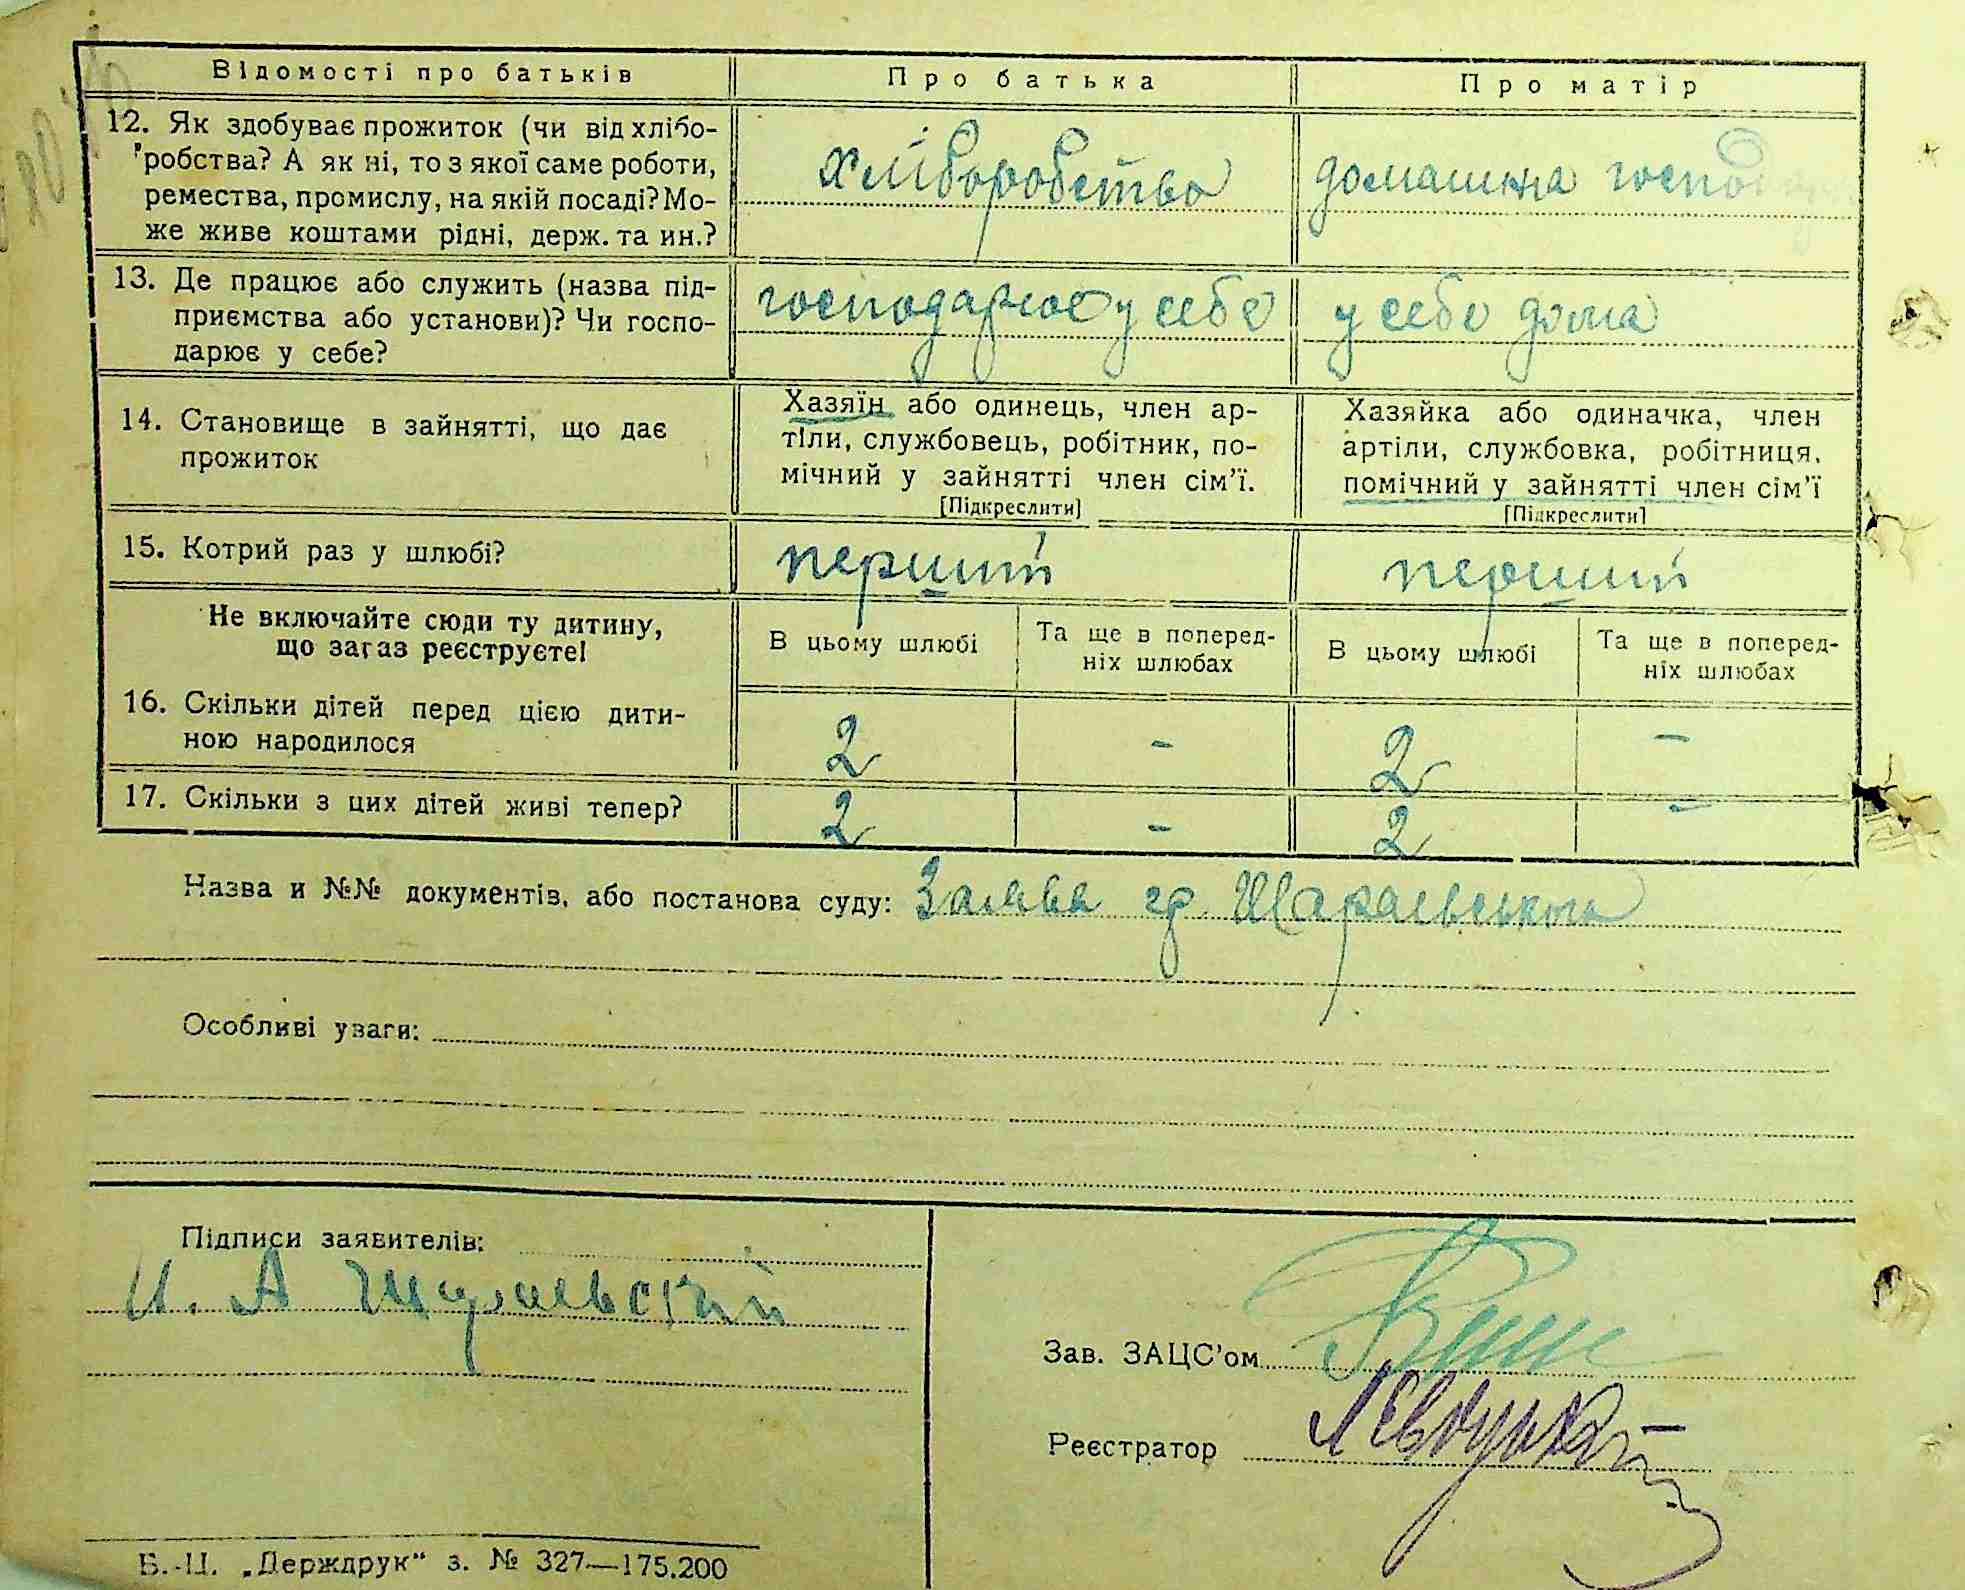 Відомості про батьків
Про батька
Про матір
12. Як здобуває прожиток (чи від хлібо-
робства? А як ні, то з якої саме роботи,
ремества, промислу, на якій посаді? Мо-
же живе коштами рідні, держ. та ин.?
хліборобство
домашня господ
13. Де працює або служить (назва під-
приємства або установи)? Чи госпо-
дарює у себе?
господарює у себе
у себе дома
14. Становище в зайнятті, що дає
прожиток
Хазяїн або одинець, член ар-
тіли, службовець, робітник, по-
мічний у зайнятті член сім'ї.
[Підкреслити]
Хазяйка або одиначка, член
артіли, службовка, робітниця,
помічний у зайнятті член сім'ї
[Підкреслити]
15. Котрий раз у шлюбі?
перший
перший
Не включайте сюди ту дитину,
що зараз реєструєте!
В цьому шлюбі
Та ще в поперед-
ніх шлюбах
В цьому шлюбі
Та ще в поперед-
ніх шлюбах
16. Скільки дітей перед цією дити-
ною народилося
2 - 2 -
17. Скільки з цих дітей живі тепер?
2 - 2 -
Назва и №№ документів, або постанова суду: Заява гр.
Особливі уваги:
Підписи заявителів:
Зав. ЗАЦС'ом
Реєстратор
Б.-Ц. „Держдрук" з. № 327—175.200